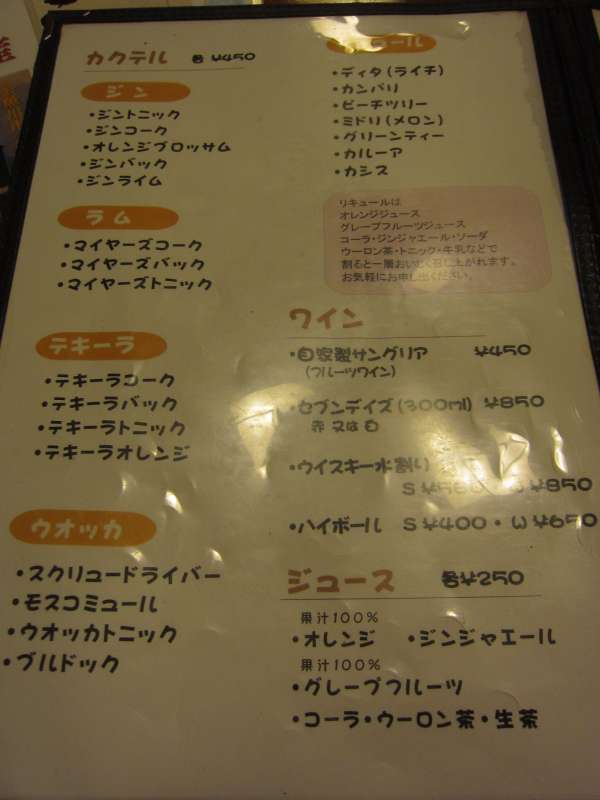 カクテル 各 ¥450
ジン
・ジントニック
・ジンコーク
・オレンジブロッサム
・ジンバック
・ジンライム
ラム
・マイヤーズコーク
・マイヤーズバック
・マイヤーズトニック
テキーラ
・テキーラコーク
・テキーラバック
・テキーラトニック
・テキーラオレンジ
ウオッカ
・スクリュードライバー
・モスコミュール
・ウオッカトニック
・ブルドック
・ディタ(ライチ)
・カンパリ
・ピーチツリー
・ミドリ(メロン)
・グリーンティー
・カルーア
・カシス
リキュールは
オレンジジュース
グレープフルーツジュース
コーラ・ジンジャエール・ソーダ
ウーロン茶・トニック・牛乳などで
割ると一層おいしく召し上がれます。
お気軽にお申し出ください。
ワイン
・自家製サングリア ¥450
(フルーツワイン)
・セブンデイズ(300ml) ¥850
赤 又は 白
・ウイスキー水割り
S ¥560 ¥850
・ハイボール S ¥400・W ¥650
ジュース 各¥250
果汁100%
・オレンジ ・ジンジャエール
果汁100%
・グレープフルーツ
・コーラ・ウーロン茶・生茶